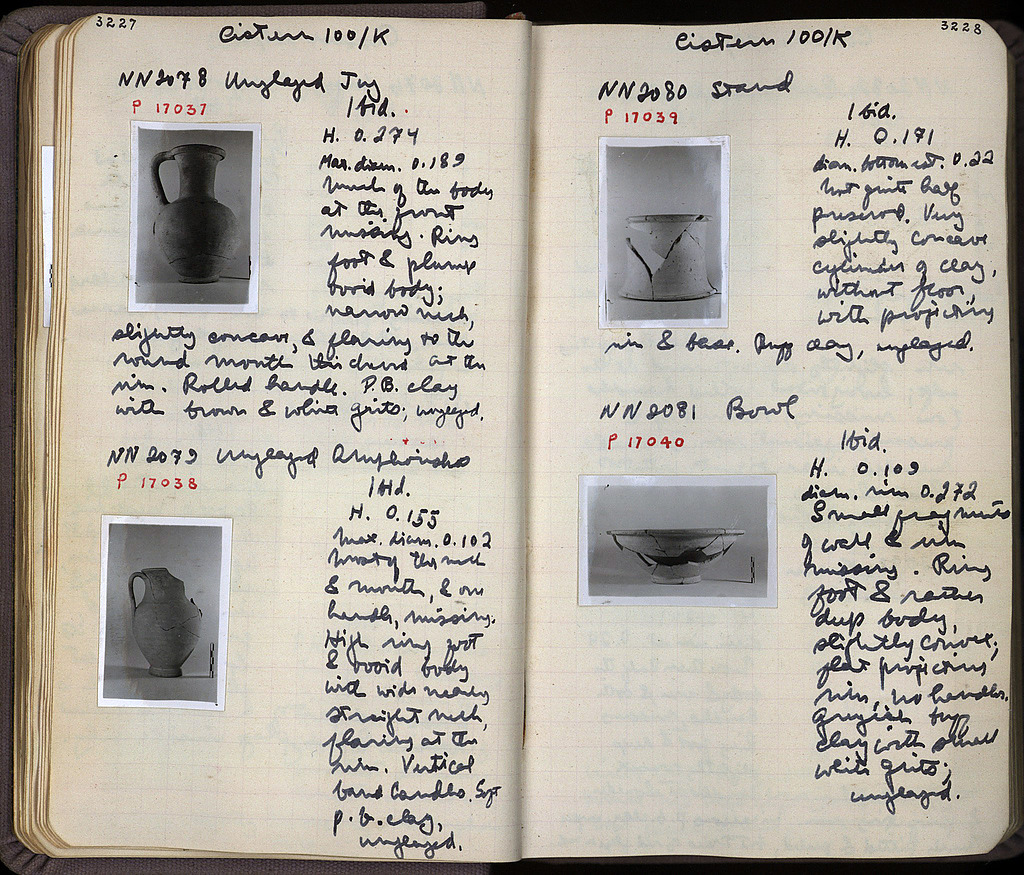 3227
Cistern 100/K
NN2078 Unglazed Jug
P 17037
Ibid.
H. 0.274
Max. diam. 0.189
Much of the body
at the front
missing. Ring
foot & plump
ovoid body;
narrow neck,
slightly concave, & flaring to the
round mouth thickened at the
rim. Rolled handle. P.B. clay
with brown & white grits; unglazed.
NN2079 Unglazed Amphoriskos
P 17038
Ibid.
H. 0.155
Max. diam. 0.102
Most of the neck
& mouth, & one
handle, missing.
High ring foot
& ovoid body
with wide nearly
straight neck,
flaring at the
rim. Vertical
band handles. Soft
p.b. clay,
unglazed.
3228
Cistern 100/K
NN2080 Stand
P 17039
Ibid.
H. 0.171
diam. bottom est. 0.22
Not quite half
preserved. Very
slightly concave
cylinder of clay,
without floor,
with projecting
rim & base. Buff clay, unglazed.
NN2081 Bowl
P 17040
Ibid.
H. 0.109
diam. rim 0.272
Small fragments
of wall & rim
missing. Ring
foot & rather
deep body,
slightly convex;
flat projecting
rim, no handles.
Greyish buff
clay with small
white grits;
unglazed.